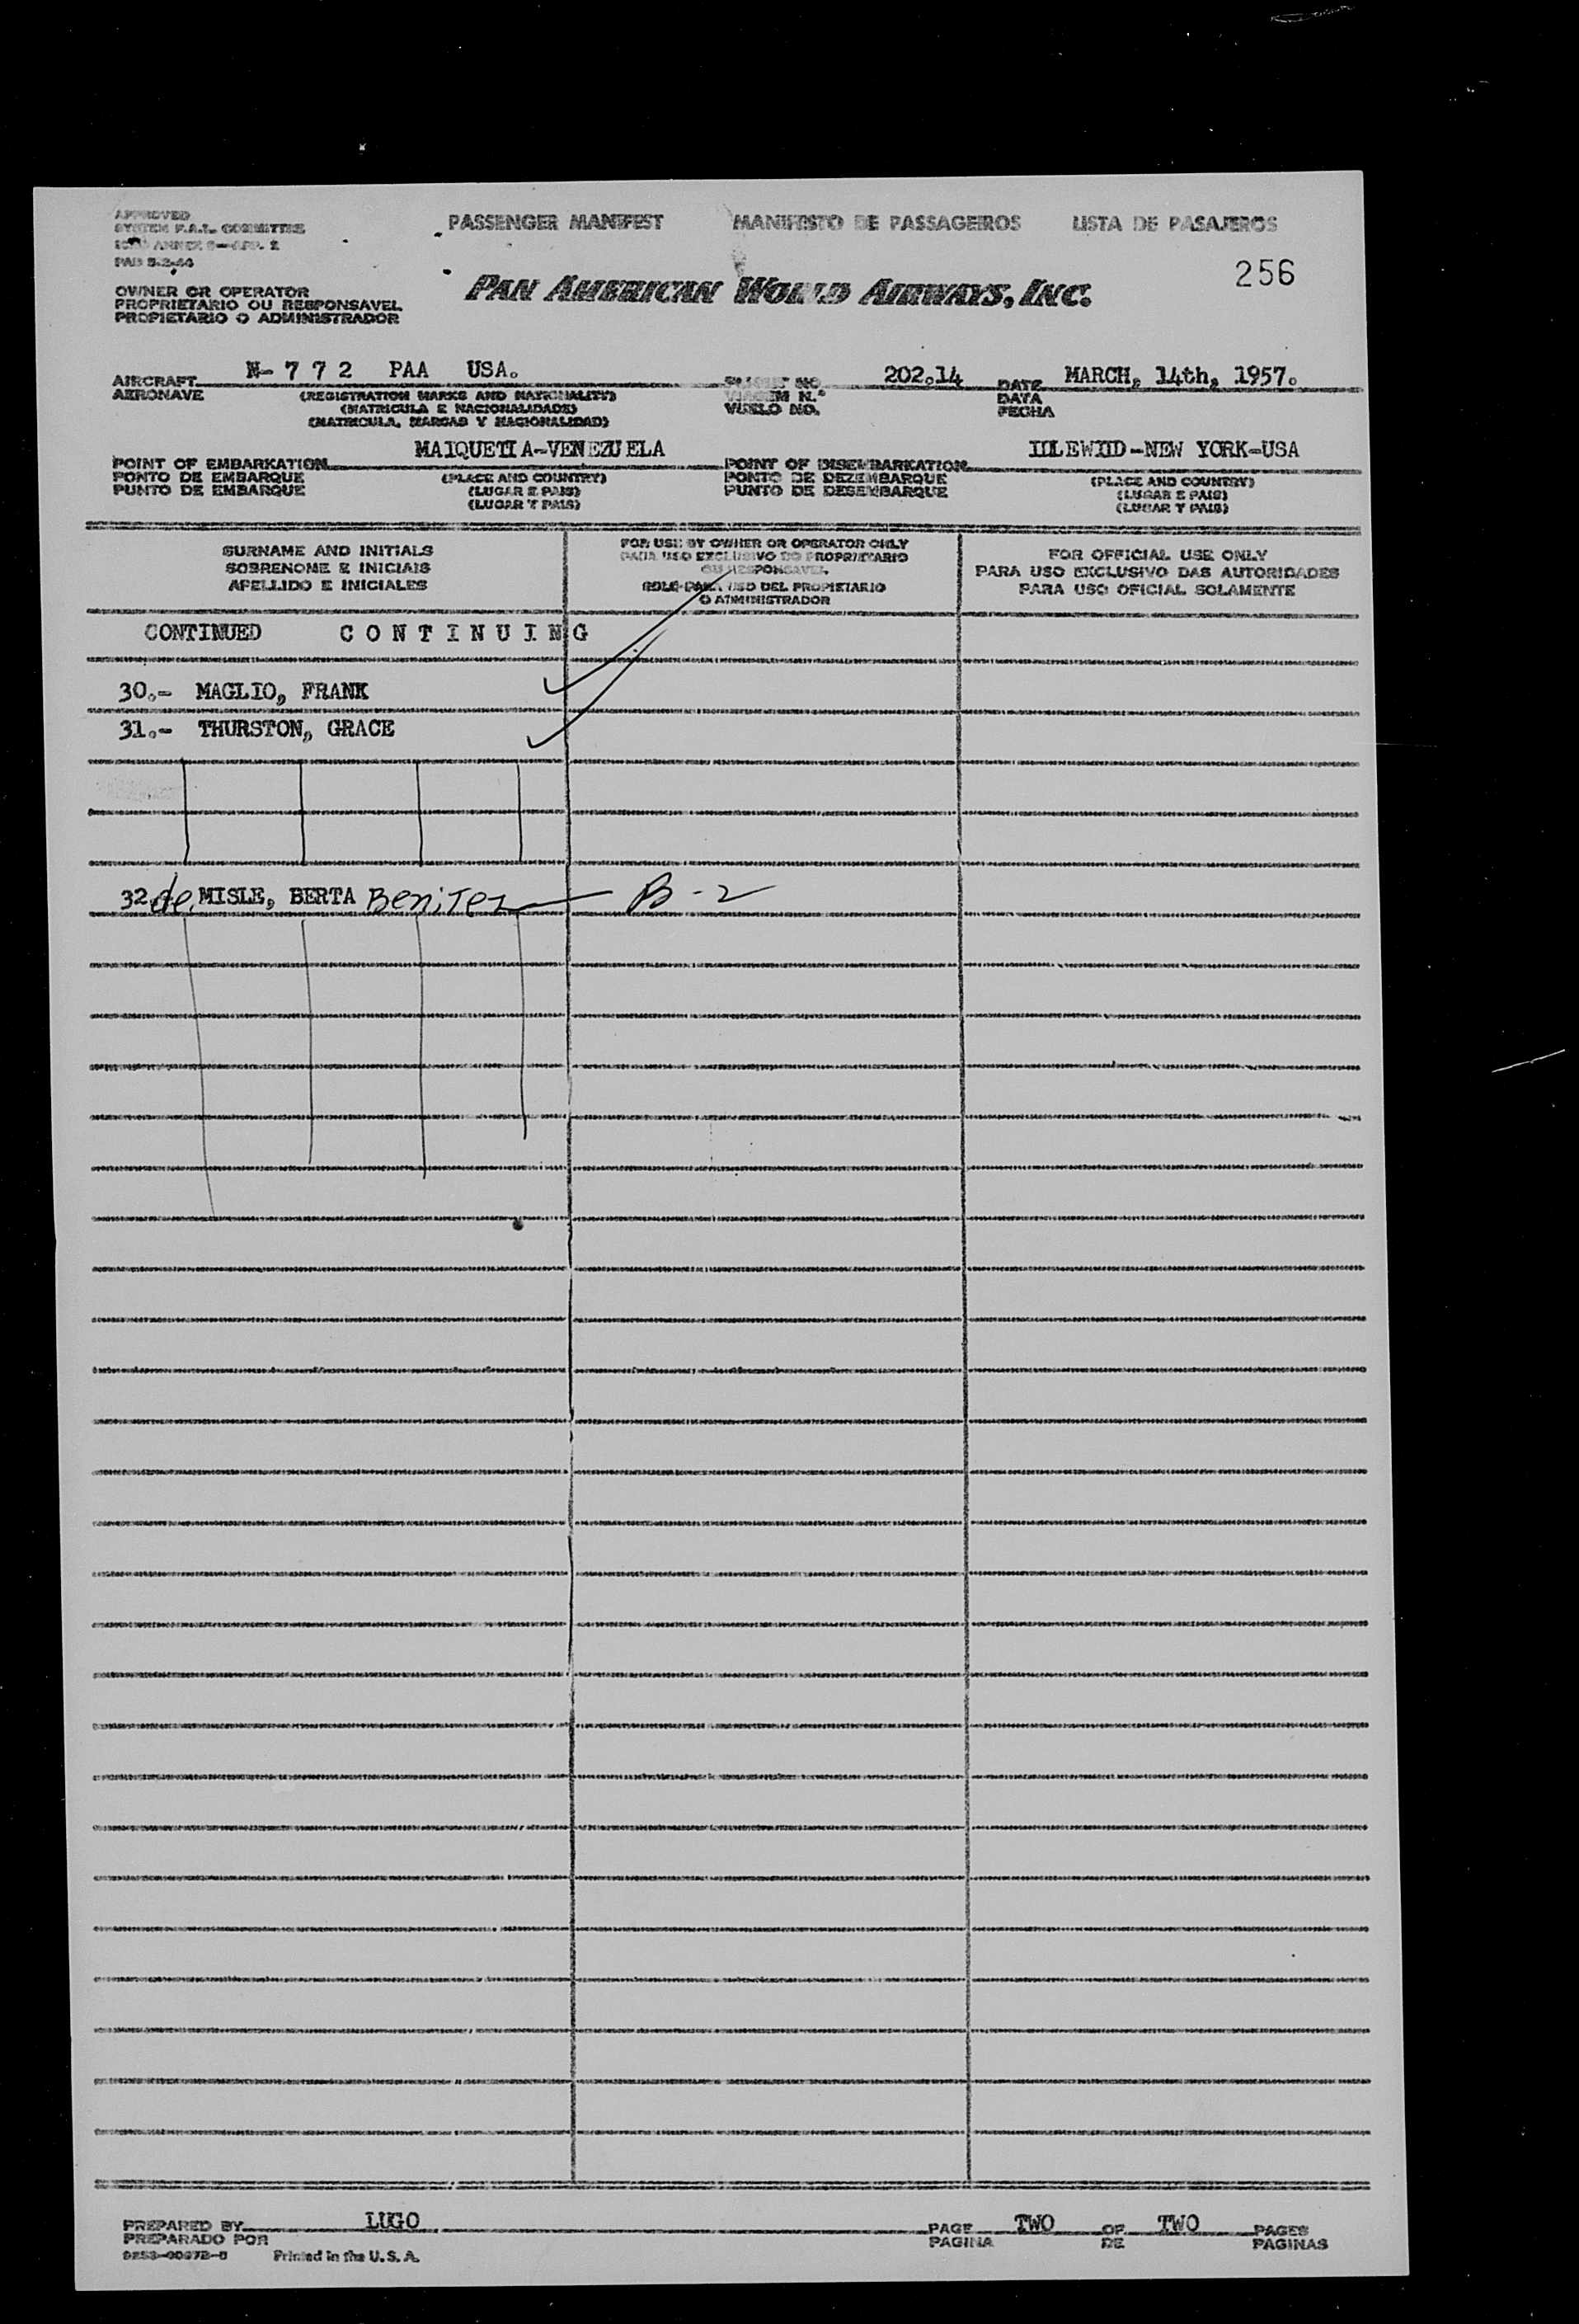 APPROVED
SYSTEM F.A.L. COMMITTEE
ANNEX 9—APP. 2
PAD 5-2-44
PASSENGER MANIFEST MANIFESTO DE PASSAGEIROS LISTA DE PASAJEROS
256
OWNER OR OPERATOR
PROPRIETARIO OU RESPONSAVEL
PROPIETARIO O ADMINISTRADOR
PAN AMERICAN WORLD AIRWAYS, INC.
AIRCRAFT N- 7 7 2 PAA USA. NO 202.14 DATE MARCH, 14th, 1957.
AERONAVE (REGISTRATION MARKS AND NATIONALITY) VIAGEM N.º DATA
(MATRICULA E NACIONALIDADE) VUELO NO. FECHA
(MATRICULA, MARCAS Y NACIONALIDAD)
POINT OF EMBARKATION MAIQUETIA-VENEZUELA POINT OF DISEMBARKATION IDLEWIID-NEW YORK-USA
PONTO DE EMBARQUE (PLACE AND COUNTRY) PONTO DE DEZEMBARQUE (PLACE AND COUNTRY)
PUNTO DE EMBARQUE (LUGAR E PAIS) PUNTO DE DESEMBARQUE (LUGAR E PAIS)
(LUGAR Y PAIS) (LUGAR Y PAIS)
SURNAME AND INITIALS
SOBRENOME E INICIAIS
APELLIDO E INICIALES
FOR USE BY OWNER OR OPERATOR ONLY
PARA USO EXCLUSIVO DO PROPRIETARIO
OU RESPONSAVEL
SOLO PARA USO DEL PROPIETARIO
O ADMINISTRADOR
FOR OFFICIAL USE ONLY
PARA USO EXCLUSIVO DAS AUTORIDADES
PARA USO OFICIAL SOLAMENTE
CONTINUED C O N T I N U I N G
30.- MAGLIO, FRANK
31.- THURSTON, GRACE
32 de MISLE, BERTA Benitez B-2
PREPARED BY LUGO PAGE TWO OF TWO PAGES
PREPARADO POR PAGINA DE PAGINAS
Printed in the U.S.A.